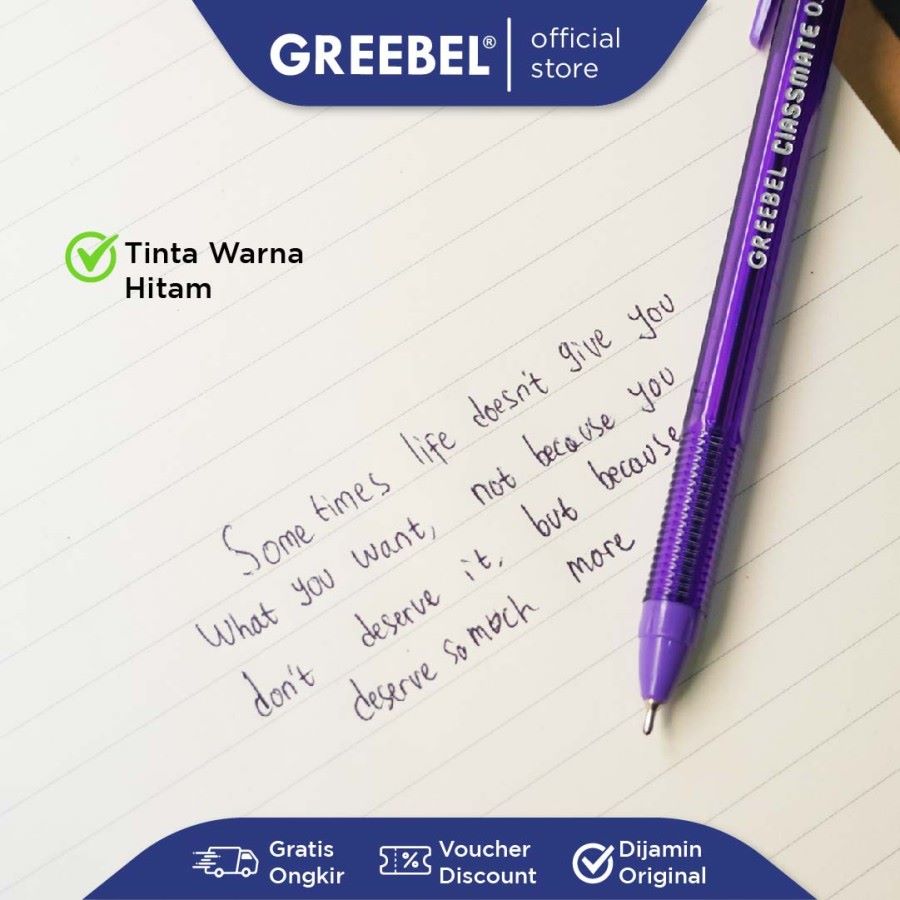 GREEBEL® official store
GREEBEL Classmate 0.
Tinta Warna
Hitam
Some times life doesn't give you
What you want, not because you
don't deserve it, but because
deserve so much more
Gratis Ongkir
Voucher Discount
Dijamin Original